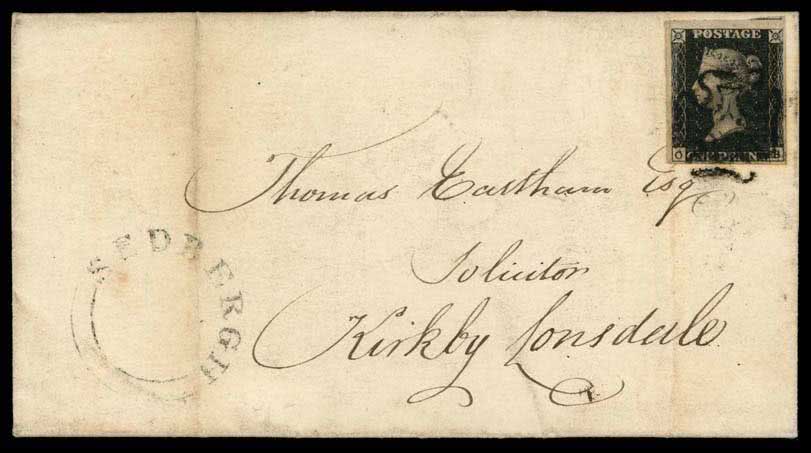 POSTAGE
O ONE PENNY B
Thomas Eastham Esq
SEDBERGH
Solicitor
Kirkby Lonsdale